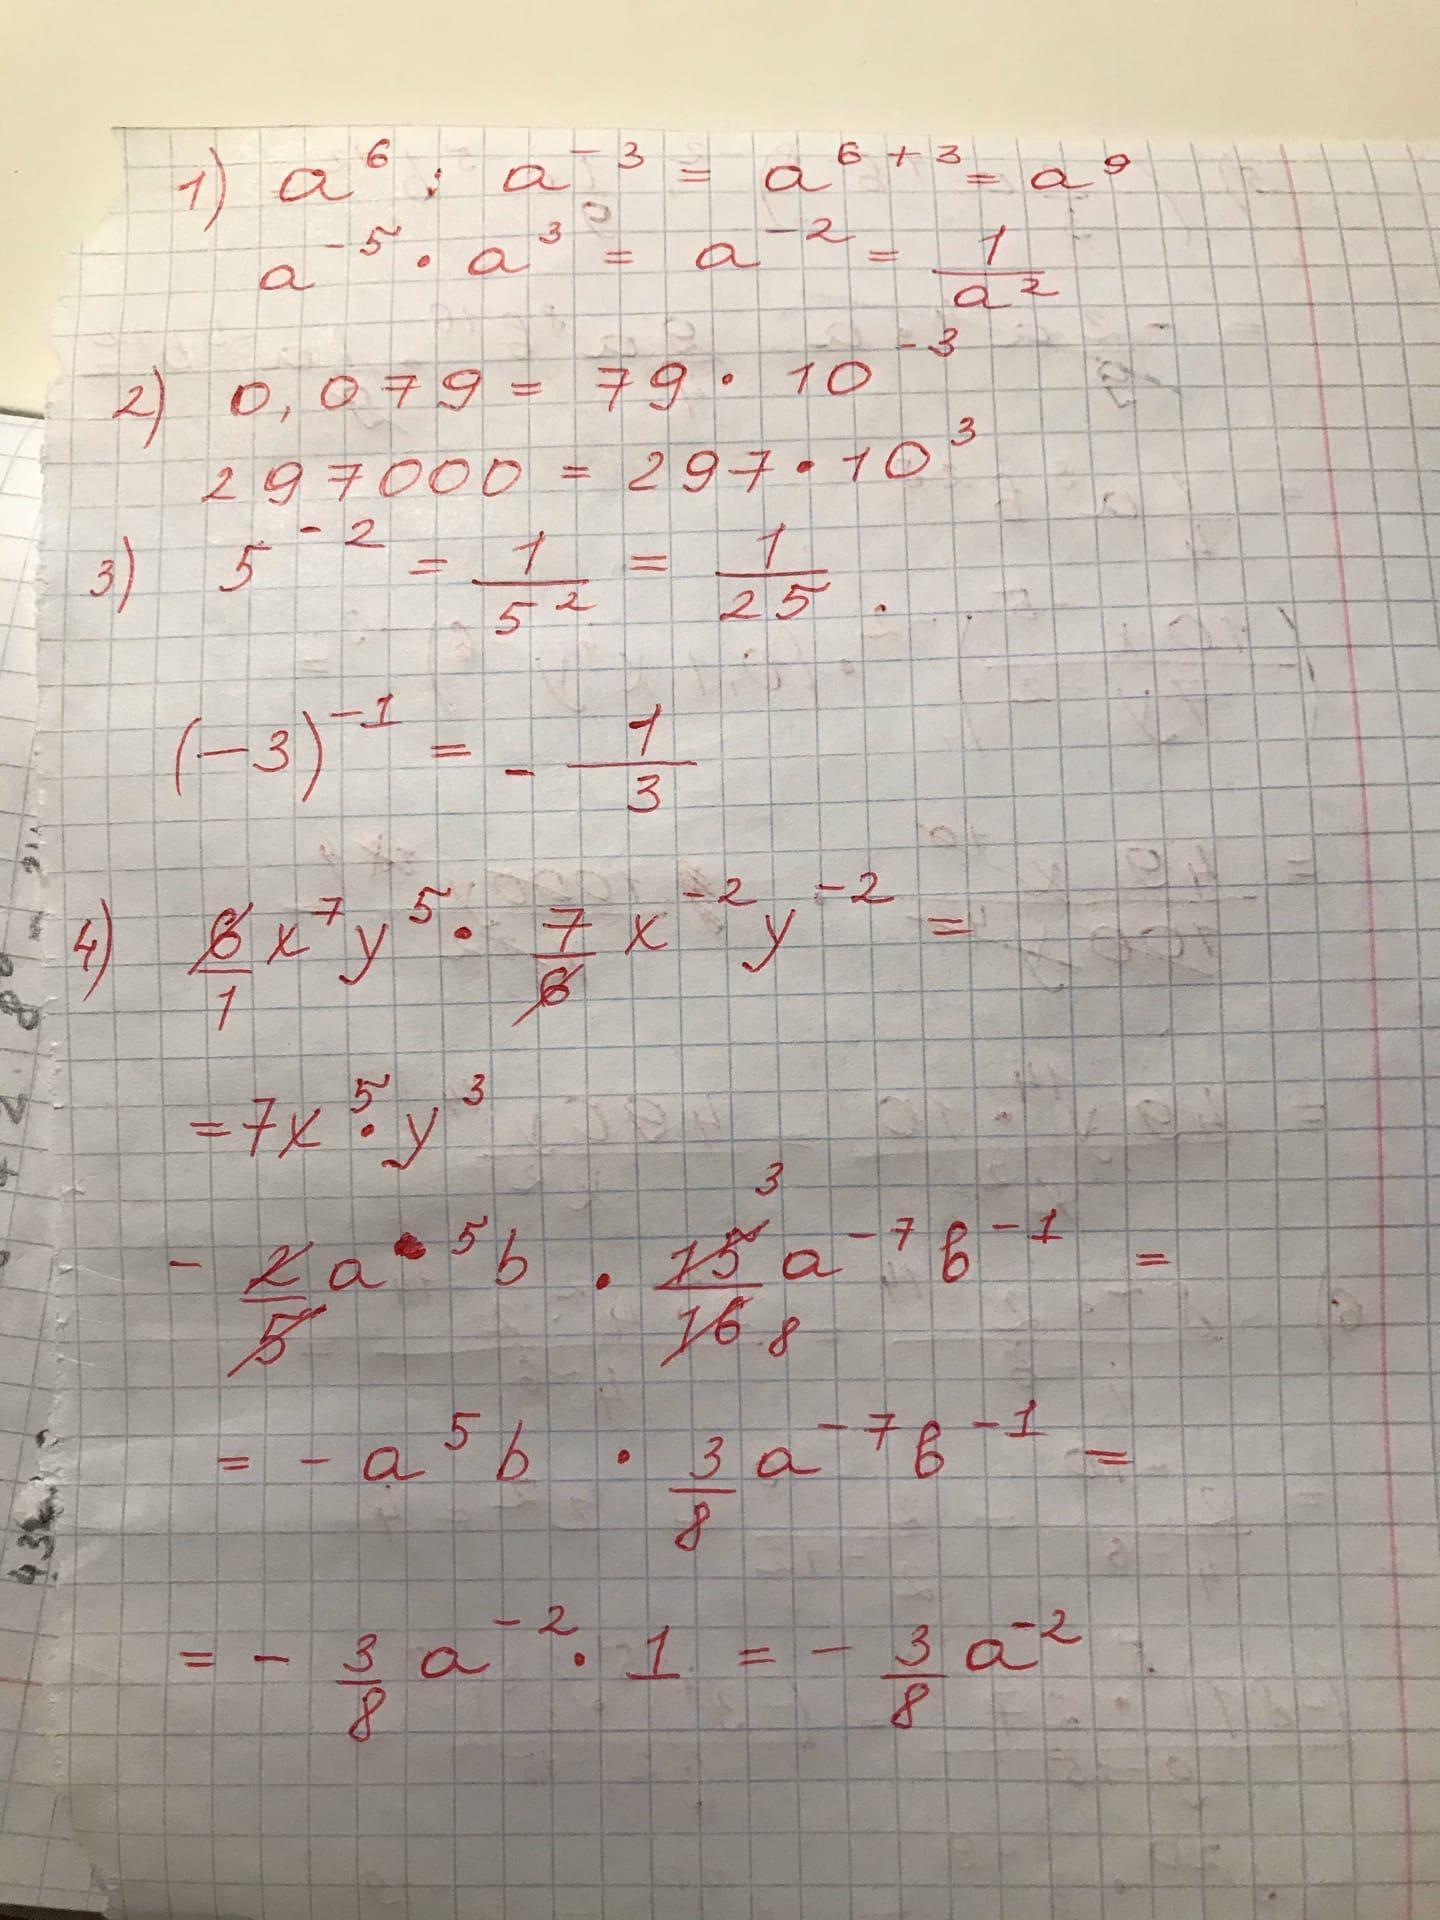 1) a⁶ : a⁻³ = a⁶⁺³ = a⁹
a⁻⁵ · a³ = a⁻² = 1/a²
2) 0,079 = 79 · 10⁻³
297000 = 297 · 10³
3) 5⁻² = 1/5² = 1/25 .
(-3)⁻¹ = - 1/3
4) 6/1 x⁷y⁵ · 7/6 x⁻²y⁻² =
= 7x⁵ · y³
- 2/5 a⁵b · 15/16 a⁻⁷b⁻¹ =
3
8
= - a⁵b · 3/8 a⁻⁷b⁻¹ =
= - 3/8 a⁻² · 1 = - 3/8 a⁻²